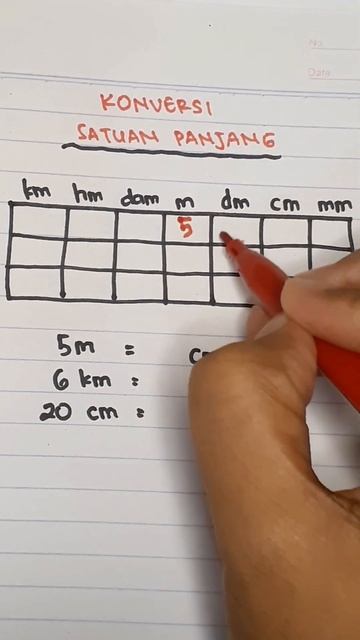 No.
Date
KONVERSI
SATUAN PANJANG
km hm dam m dm cm mm
5
5m =
6 km =
20 cm =